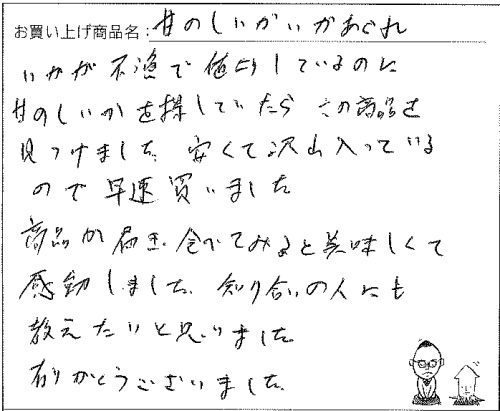 お買い上げ商品名: 甘のしいかいかあられ
いかが不漁で値上りしているのに
甘のしいかを探していたら この商品を
見つけました。安くて沢山入っている
ので早速買いました
商品が届き、食べてみると美味しくて
感動しました。知り合いの人にも
教えたいと思いました。
有りがとうございました。